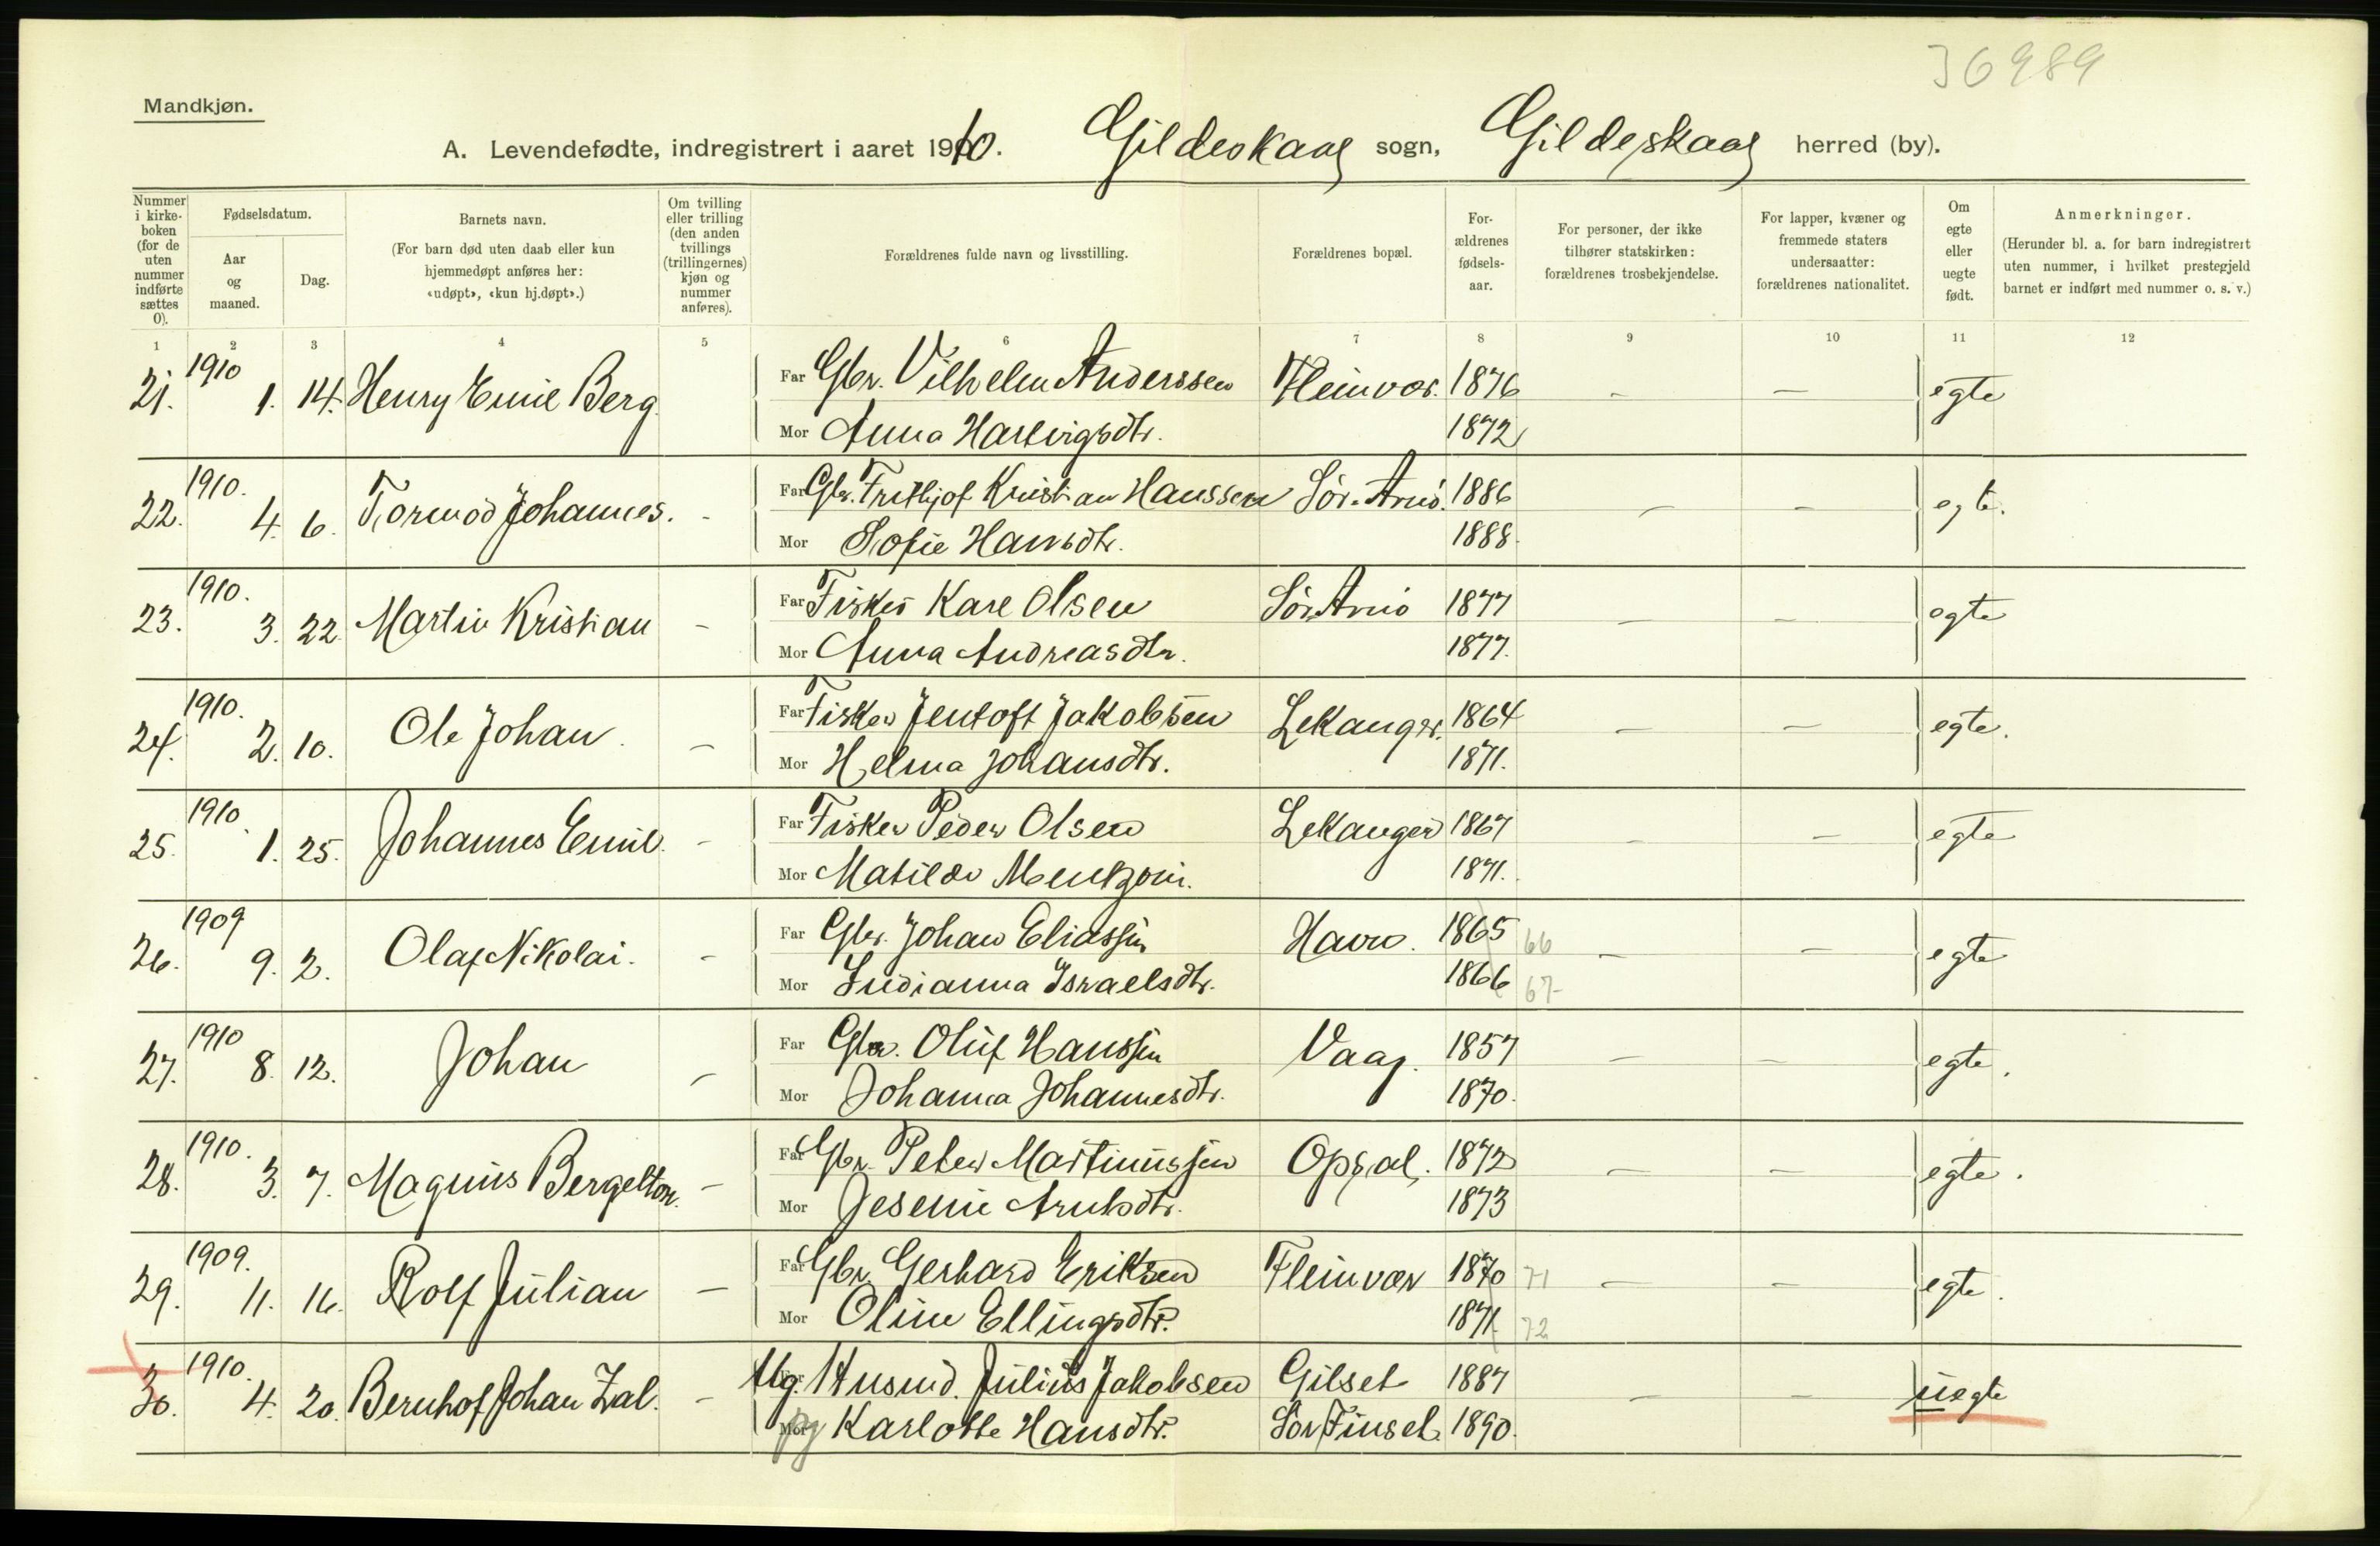 36989
Mandkjøn.
A. Levendefødte, indregistrert i aaret 1910. Gildeskaal sogn, Gildeskaal herred (by).
Nummer i kirkeboken (for de uten nummer indførte sættes 0).
Fødselsdatum.
Aar og maaned.
Dag.
Barnets navn.
(For barn død uten daab eller kun hjemmedøpt anføres her: «udøpt», «kun hj.døpt».)
Om tvilling eller trilling (den anden tvillings (trillingernes) kjøn og nummer anføres).
Forældrenes fulde navn og livsstilling.
Forældrenes bopæl.
Forældrenes fødselsaar.
For personer, der ikke tilhører statskirken: forældrenes trosbekjendelse.
For lapper, kvæner og fremmede staters undersaatter: forældrenes nationalitet.
Om egte eller uegte født.
Anmerkninger.
(Herunder bl. a. for barn indregistrert uten nummer, i hvilket prestegjeld barnet er indført med nummer o. s. v.)
1 2 3 4 5 6 7 8 9 10 11 12
21. 1910 1. 14. Henry Emil Berg Far Gbr. Vilhelm Anderssen Fleinvær. 1876 - - egte
Mor Anna Hartvigsdtr. 1872
22. 1910. 4. 6. Tormod Johannes. - Far Gbr. Frithjof Kristian Hanssen Sør. Arnø. 1886 - - egte.
Mor Sofie Hansdtr. 1888.
23. 1910. 3. 22. Martin Kristian - Far Fisker Karl Olsen Sør Arnø 1877 - - egte
Mor Anna Andreasdtr. 1877.
24. 1910. 2. 10. Ole Johan. - Far Fisker Jentoft Jakobsen Lekanger. 1864 - - egte.
Mor Helma Johansdtr. 1871.
25. 1910. 1. 25. Johannes Emil. - Far Fisker Peder Olsen Lekanger 1867 - - egte
Mor Matilde Mentzoni. 1871.
26. 1909 9. 2. Olaf Nikolai. - Far Gbr. Johan Eliassen 1865 66 - - egte
Mor Indianna Israelsdtr. 1866 67
27. 1910 8. 12. Johan - Far Gbr. Oluf Hanssen Vaag. 1857 - - egte.
Mor Johanna Johannesdtr. 1870.
28. 1910. 3. 7. Magnus Bergelton. - Far Gbr. Peter Martinussen Opsal. 1872 - - egte.
Mor Jesenie Arntsdtr. 1873
29. 1909. 11. 16. Rolf Julian - Far Gbr. Gerhard Eriksen Fleinvær 1870 71 - - egte.
Mor Oline Ellingsdtr. 1871 72
30. 1910. 4. 20. Bernhof Johan Zal. - Ug. Husmd. Julius Jakobsen Gilset 1887 - - uegte
Mor pg Karlotte Hansdtr. Sør Finset. 1890.